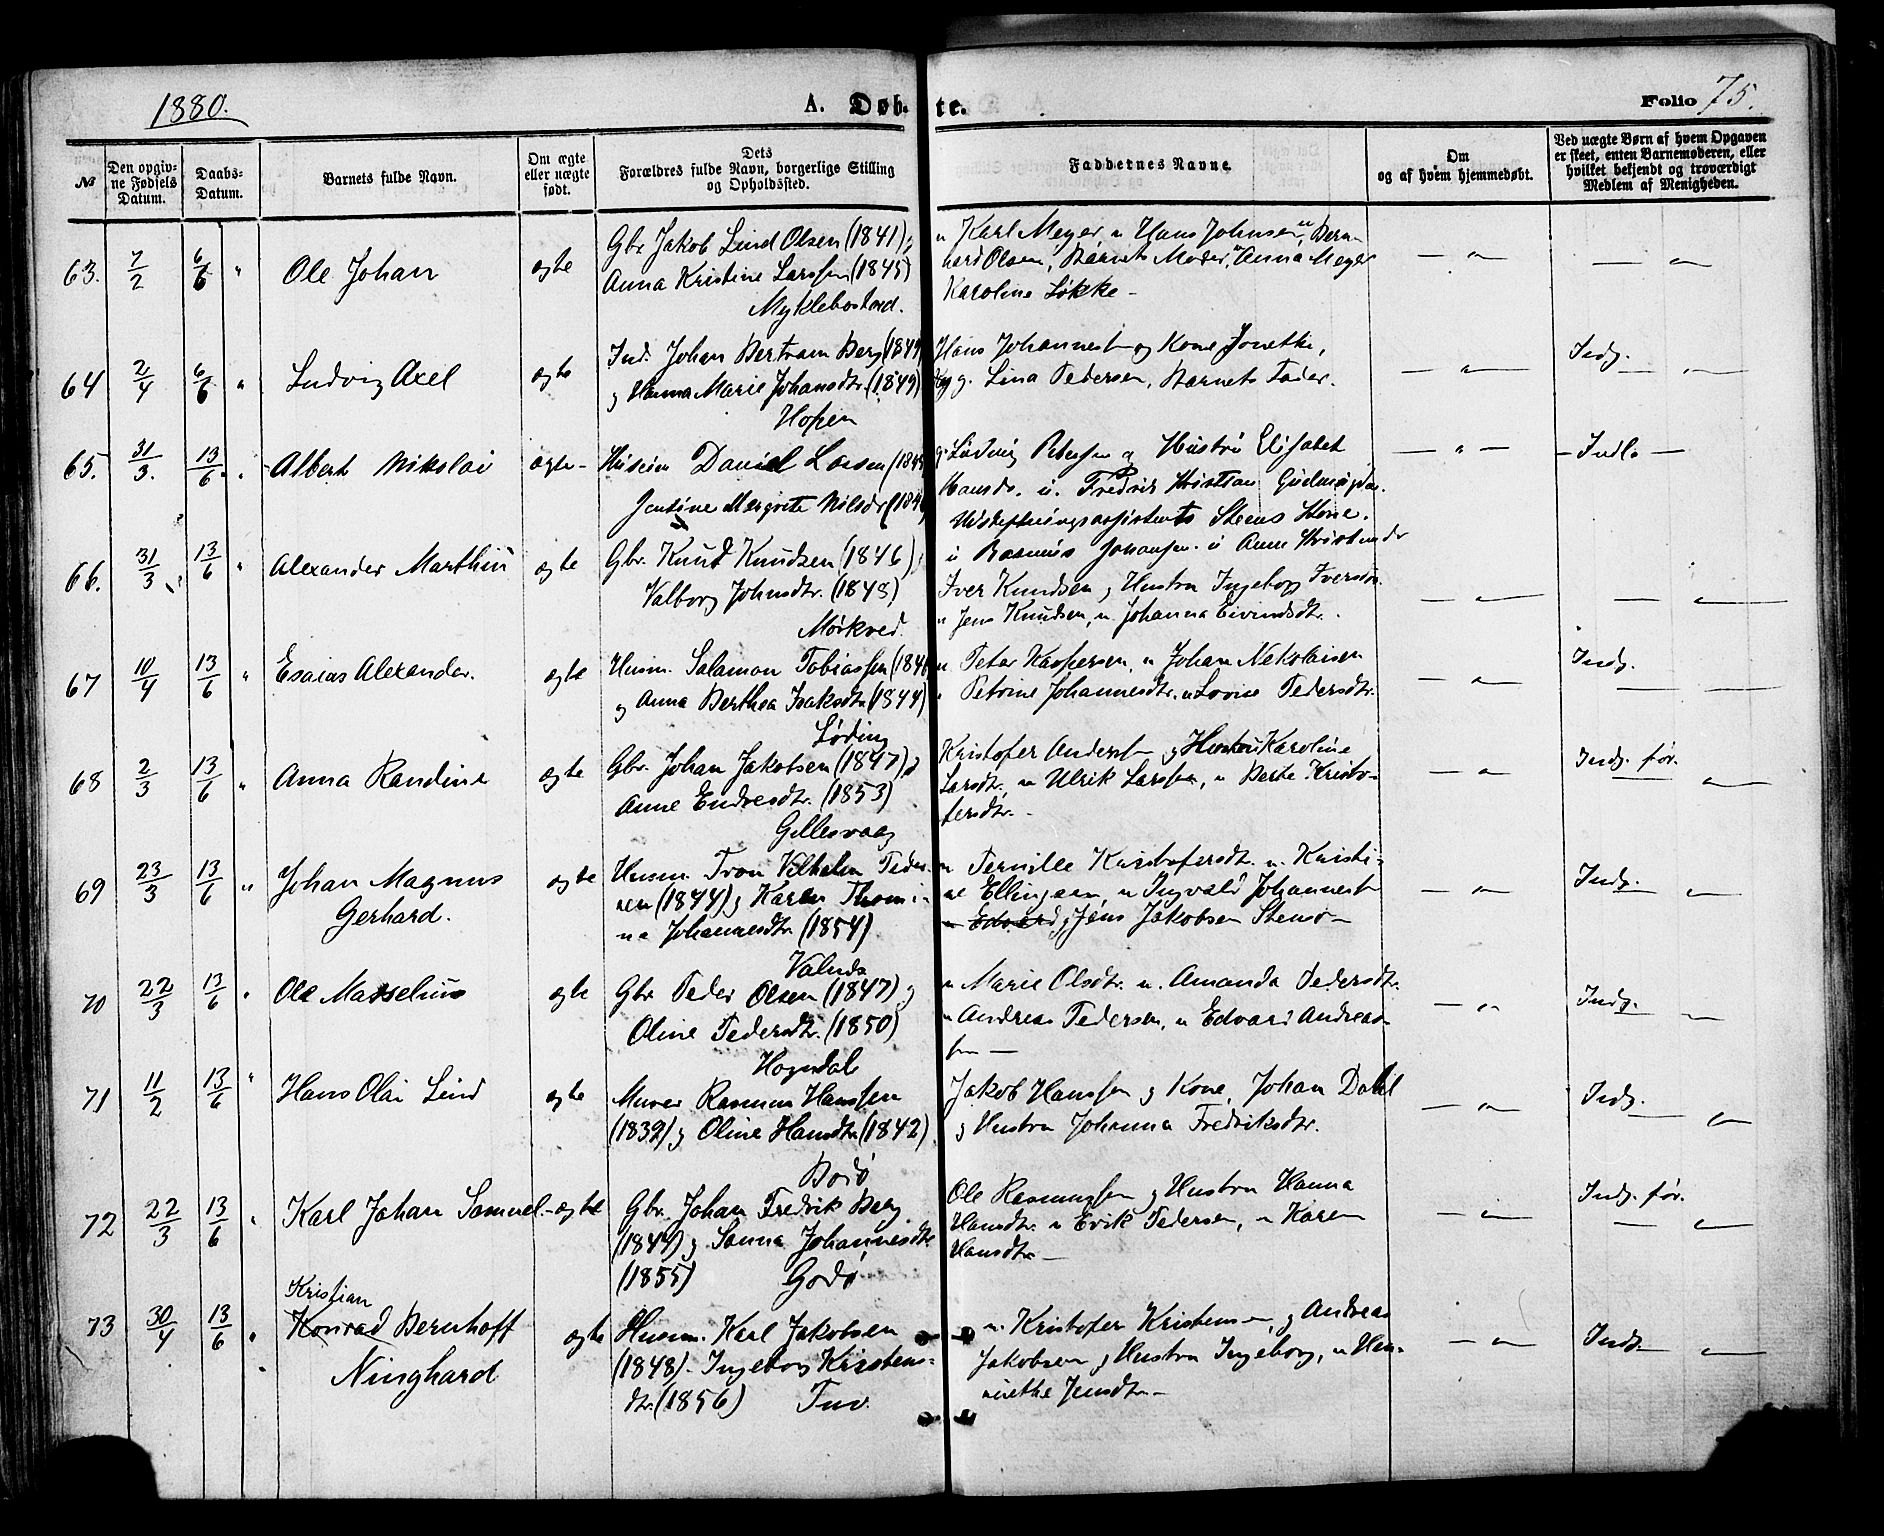 1880.
A. Døbte.
Folio 75.
№
Den opgivne Fødsels Datum.
Daabs-Datum.
Barnets fulde Navn.
Om ægte eller uægte født.
Dets Forældres fulde Navn, borgerlige Stilling og Opholdssted.
Faddernes Navne.
Om og af hvem hjemmedøbt.
Ved uægte Børn af hvem Opgaven er skeet, enten Barnemoderen, eller hvilket bekjendt og troværdigt Medlem af Menigheden.
63. 7/2 6/6 " Ole Johan ægte Gbr Jakob Lind Olsen (1841) g
Anna Kristine Larssen (1845)
Myklebostad.
u Karl Meyer u Hans Johnsen, u Bern-
hard Olsen, Barnets Moder, u Anna Meyer
Karoline Løkke -
— " — — " —
64 2/4 6/6 " Ludvig Axel ægte Ind. Johan Bertram Berg (1849
g Hanna Marie Johansdtr. (1849)
Hopen
Hans Johannest og Kone Jonette,
g. Lina Pedersen, Barnets Fader.
— " — Indg. — " —
65. 31/3. 13/6. " Albert Nikolai ægte - Daniel Larsen (184
Jentine Margrete Nilsdr (184
g Ludvig Petersen g Hustru Elisabet
Hansdr. u. Fredrik Kristian
Steens Kone.
u Rasmus Johansen. u Anne
— " — - Indl. —
66. 31/3 13/6 " Alexander Marthin ægte Gbr. Knut Knudsen (1846) g
Valborg Johnsdtr. (1848)
Mørkved.
Iver Knudsen g Hustru Ingeborg Iversdtr.
u Jens Knudsen, u. Johanna Eivindsdtr.
— " — — " —
67 10/4 13/6 " Esaias Alexander. ægte Husm. Salamon Tobiassen (184
g Anna Berthea Isaksdtr (1844)
Løding
u Petar Kaspersen, u Johan Nikolaisen
u Petrine Johannesdtr. u Lovise Pedersdtr.
— " — Indg. — —
68 2/3 13/6 " Anna Randine ægte Gbr. Johan Jakobsen (1847) g
Anne Endresdtr. (1853)
Gillesvaag
Kristofer Anderst g Hustru Karoline
Larsdtr. u Ulrik Larssen, u Berte Kristo-
fersdtr. -
— " — Indg. før. — " —
69 23/3 13/6 " Johan Magnus
Gerhard.
ægte Husm. Tron Vilhelm Peder-
sen (1844) g Karen Thomi-
na Johannesdtr (1854)
Valnes
u Pernille Kristofersdtr. u. Kristi-
ne Ellingsen, u Ingvald Johannest
Edvard g Jens Jakobsen Stensø -
— " — Indg. — " —
70 22/3 13/6 " Ole Marselius ægte Gbr. Peder Olsen (1847) g
Oline Pedersdtr. (1850)
Hogndal
u Marie Olsdtr. u. Amanda Pedersdtr.
u Andreas Pedersen, u Edvard Andreas-
sen —
— " Indg. — " —
71 11/2 13/6 " Hans Olai Lind ægte Murer Rasmus Hanssen
(1839) g Oline Hansdtr (1842)
Bodø
Jakob Hanssen g Kone, Johan Dahl
g Hustru Johanna Fredriksdtr.
— " — Indg. — " —
72 22/3 13/6 " Karl Johan Samuel - ægte Gbr. Johan Fredrik Berg
(1847) g Sanna Johannesdtr
(1855) Godø
Ole Rasmussen g Hustru Hanna
Hansdtr. u Erik Pedersen, u Karen
Hansdtr —
— " — Indg. før. — " —
73 30/4 13/6 " Kristian
Konrad Bernhoff
Ninghard
ægte Husm. Karl Jakobsen
(1848). Ingeborg Kristens-
dtr. (1856) Tuv.
u. Kristofer Kristensen, g Andreas
Jakobsen g Hustru Ingeborg, u Hen-
riette Jensdtr -
— " — Indg. — " —